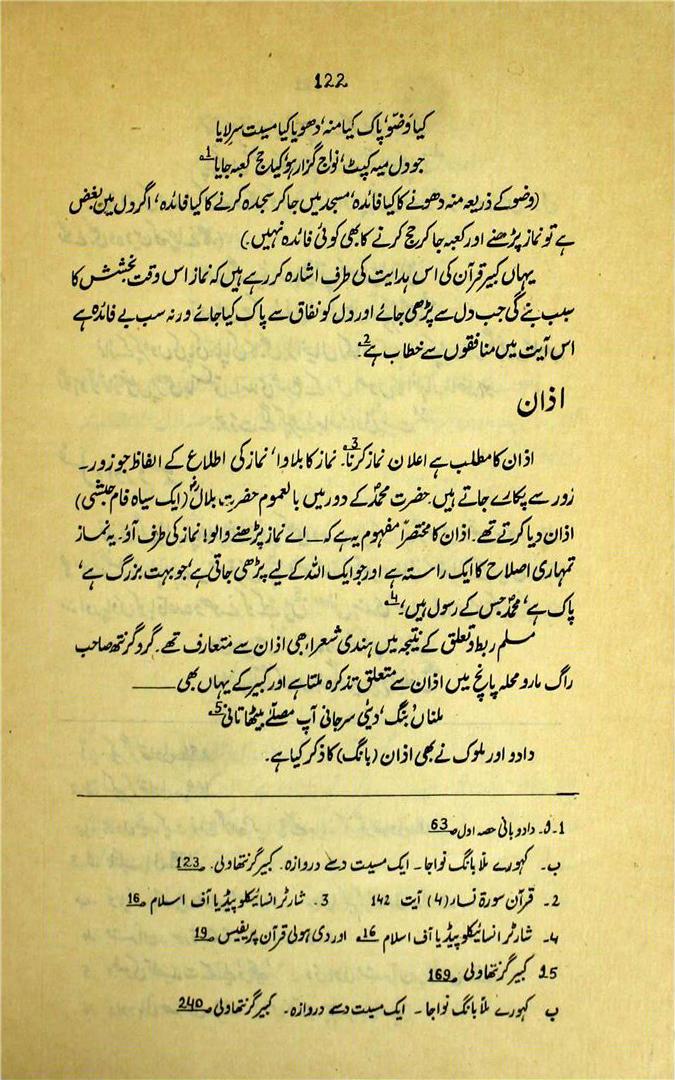 122
کیا وضو پاک کیا منہ' دھویا کیا مسیت سر لایا
جو دل میہ کپٹ' نواج گزار ہو' کیا حج کعبہ جایا 1؎
(وضو کے ذریعہ منہ دھونے کا کیا فائدہ' مسجد میں جا کر سجدہ کرنے کا کیا فائدہ' اگر دل میں بغض
ہے تو نماز پڑھنے اور کعبہ جا کر حج کرنے کا بھی کوئی فائدہ نہیں۔)
یہاں کبیر قرآن کی اس ہدایت کی طرف اشارہ کر رہے ہیں کہ نماز اس وقت بخشش کا
سبب بنے گی جب دل سے پڑھی جائے اور دل کو نفاق سے پاک کیا جائے ورنہ سب بے فائدہ ہے
اس آیت میں منافقوں سے خطاب ہے 2؎۔
اذان
اذان کا مطلب ہے اعلان نماز کرنا 3؎۔ نماز کا بلاوا' نماز کی اطلاع کے الفاظ جو زور۔
زور سے پکارے جاتے ہیں۔ حضرت محمدؐ کے دور میں بالعموم حضرت بلالؓ (ایک سیاہ فام حبشی)
اذان دیا کرتے تھے۔ اذان کا مختصراً مفہوم یہ ہے کہ ــ اے نماز پڑھنے والو! نماز کی طرف آؤ۔ یہ نماز
تمہاری اصلاح کا ایک راستہ ہے اور جو ایک اللہ کے لیے پڑھی جاتی ہے' جو بہت بزرگ ہے'
پاک ہے' محمدؐ جس کے رسول ہیں' 4؎
مسلم ربط و تعلق کے نتیجہ میں ہندی شعرا بھی اذان سے متعارف تھے۔ گرو گرنتھ صاحب
راگ مارو محلہ پانچ میں اذان سے متعلق تذکرہ ملتا ہے اور کبیر کے یہاں بھی ــــــ
ملناں' بنگ' دیٔ سرجانی آپ مصلّے بیٹھا تانی 5؎
دادو اور ملوک نے بھی اذان (بانگ) کا ذکر کیا ہے۔
1۔ و۔ دادو بانی حصہ اول صـ 63
ب۔ کہورے ملّا بانگ نواجا۔ ایک مسیت دسے دروازہ۔ کبیر گرنتھاولی۔ صـ 123
2۔ قرآن سورۃ نسار (4) آیت 142 3۔ شارٹر انسائیکلوپیڈیا آف اسلام صـ 16
4۔ شارٹر انسائیکلوپیڈیا آف اسلام صـ 16 اور دی ہولی قرآن پریفیس صـ 19
15 کبیر گرنتھاولی صـ 169
ب کہورے ملّا بانگ نواجا۔ ایک مسیت دسے دروازہ۔ کبیر گرنتھاولی صـ 240